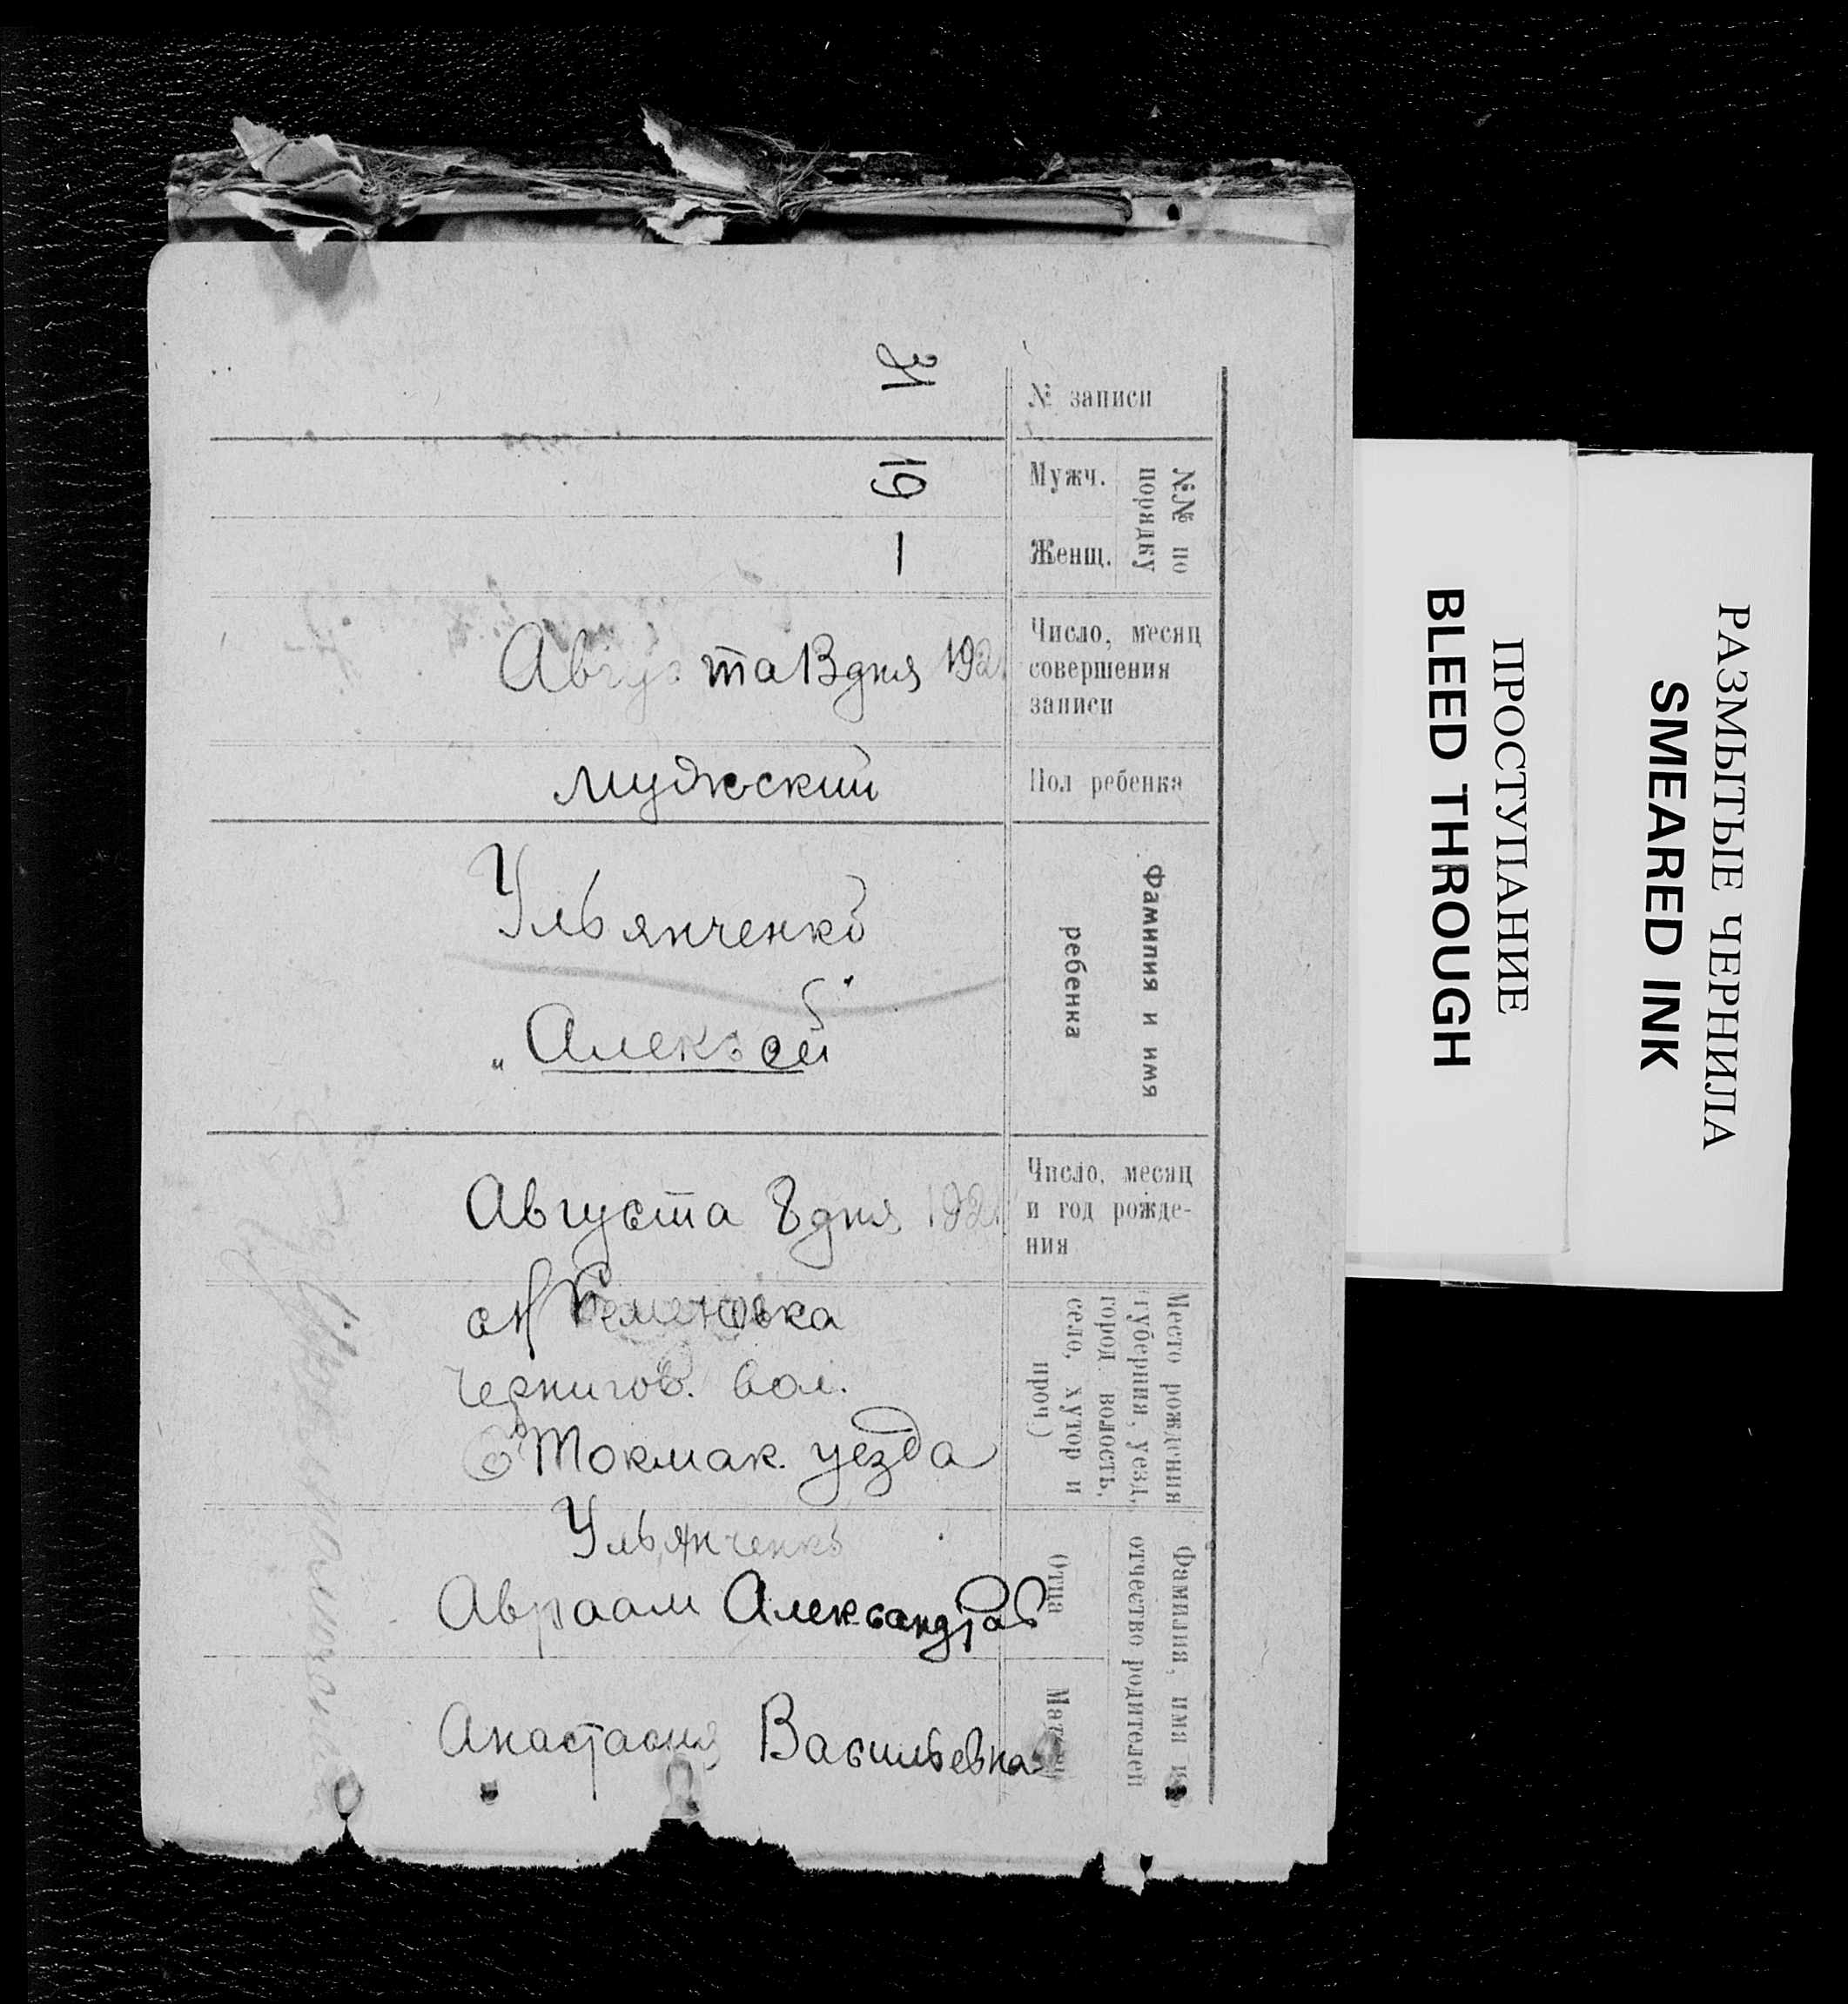 № записи
31
№№ по
порядку
Мужч.
19
Женщ.
Число, месяц
совершения
записи
Августа 13 дня 192
Пол ребенка
мужской
Фамилия и имя
ребенка
Ульянченко
„Алексей"
Число, месяц
и год рожде-
ния
Августа 8 дня 192
Место рождения
губерния, уезд,
город, волость,
село, хутор и
проч.)
Семеновка
Чернигов. вол.
Токмак. уезда
Фамилия, имя и
отчество родителей
Отца
Ульянченко
Авраам Александров
Матери
Анастасия Васильевна
ПРОСТУПАНИЕ
BLEED THROUGH
РАЗМЫТЫЕ ЧЕРНИЛА
SMEARED INK